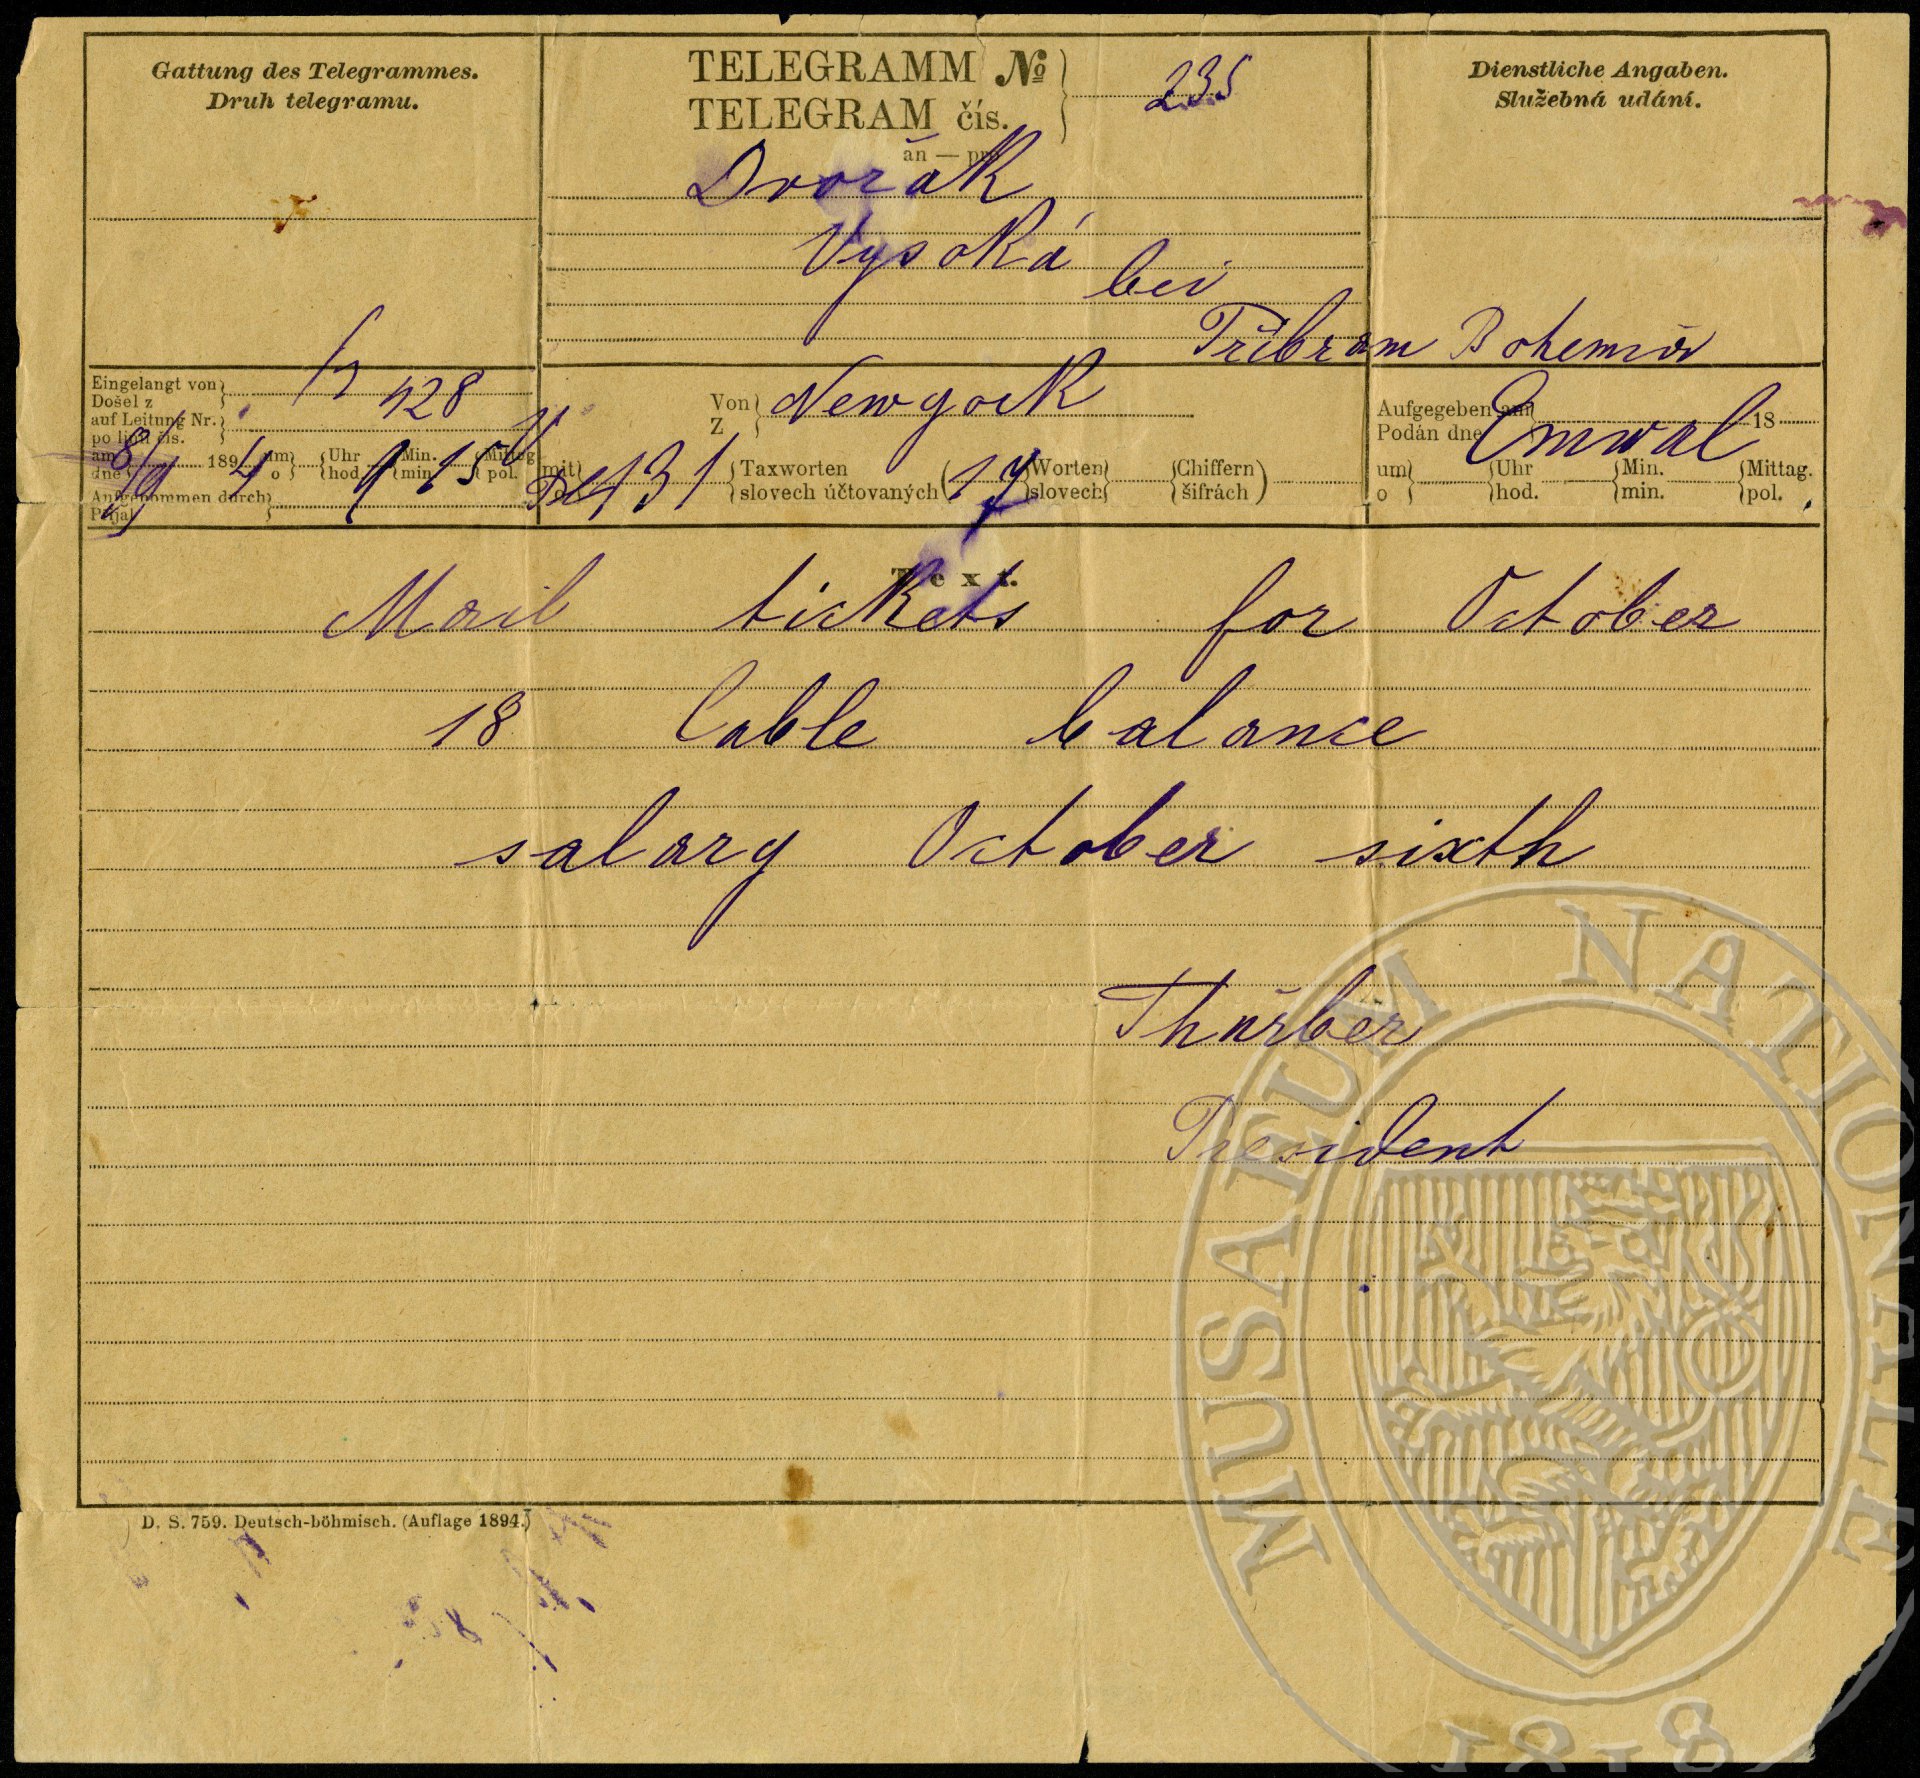 Gattung des Telegrammes.
Druh telegramu.
TELEGRAMM №
TELEGRAM čís.
235
an — pro
Dienstliche Angaben.
Služebná udání.
Dvořák
Vysoká
bei
Přibram Bohemia
Eingelangt von
Došel z
auf Leitung Nr.
po linii čís.
428
am
dne
8/9 1894
um
o
Uhr
hod.
Min.
min.
15
Mittag
pol.
Aufgenommen durch
Přijal
Von
Z
Newyork
mit
o
131
Taxworten
slovech účtovaných
(17
Worten
slovech
Chiffern
šifrách)
Aufgegeben am
Podán dne
18
Emwal
um
o
Uhr
hod.
Min.
min.
Mittag.
pol.
Text.
Mail tickets for October
18 Cable balance
salary October sixth
Thurber
President
D. S. 759. Deutsch-böhmisch. (Auflage 1894.)
MUSAEUM NATIONALE
1818